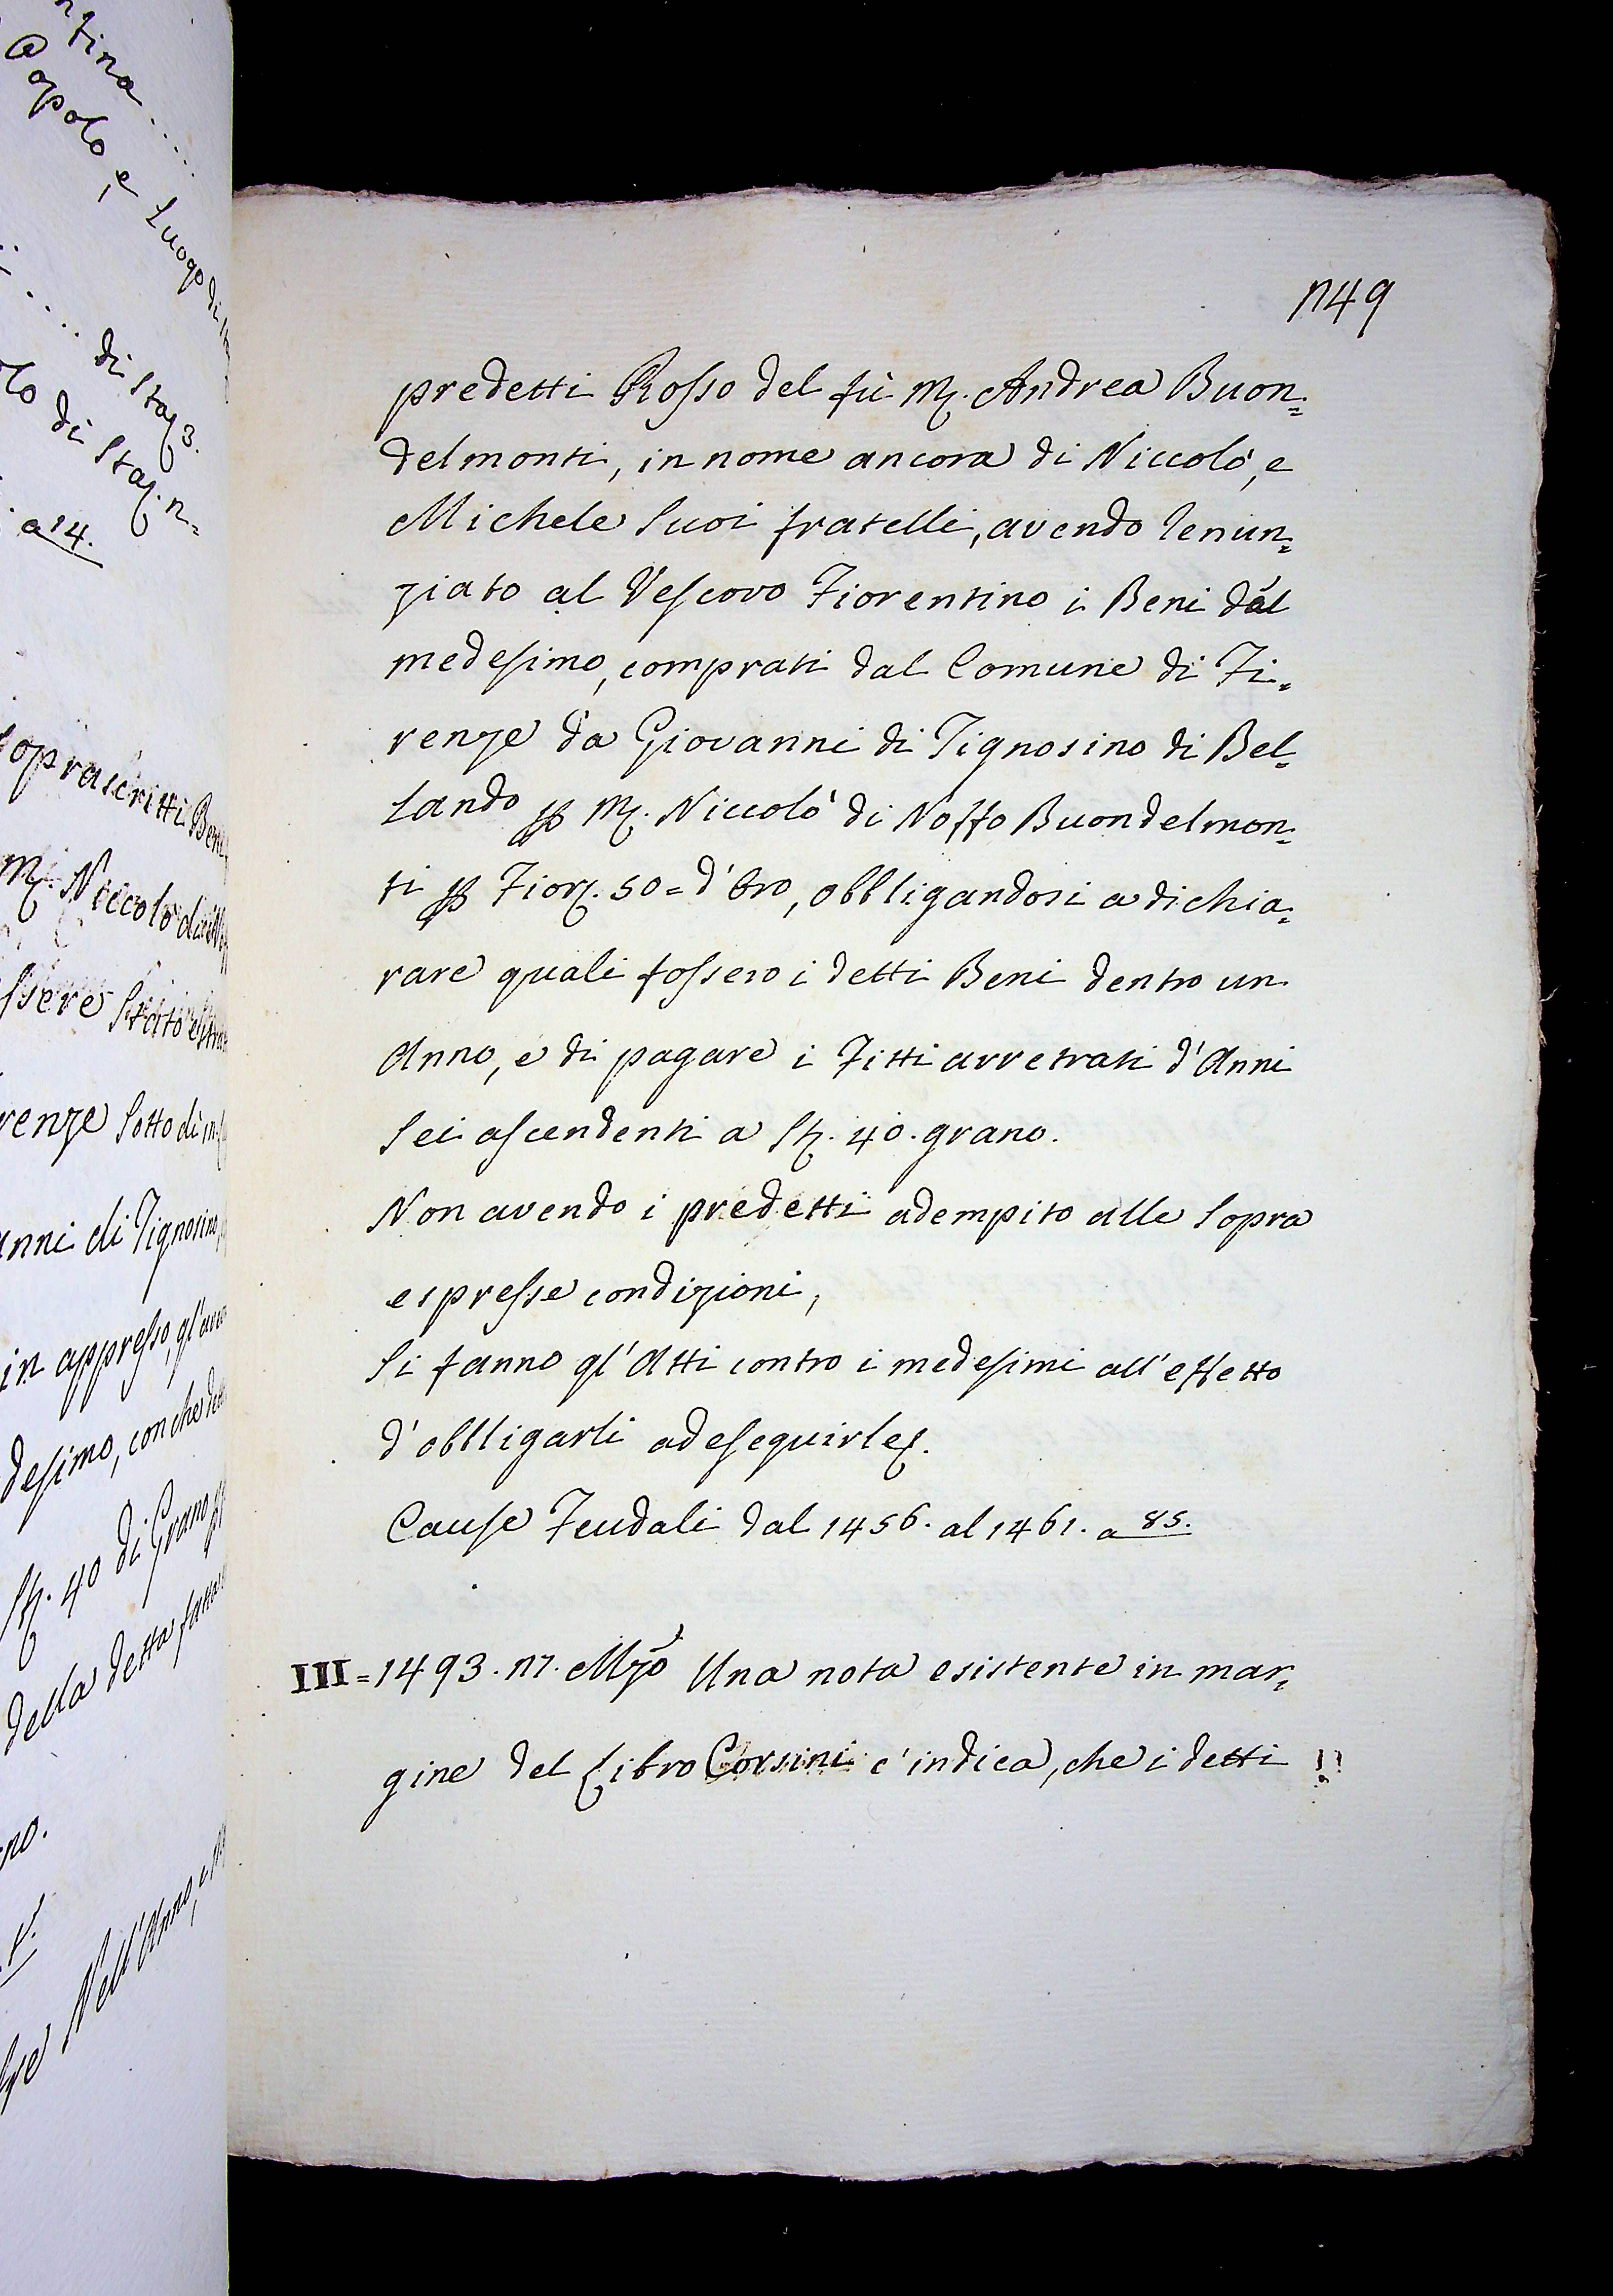 ntina .....
Popolo, e Luogo di
..... di Staj 3.
lo di Staj. n=
a 14.
soprascritti Beni
M. Niccolò di
ssere stato estra
renze sotto dì in
anni di Tignosino
in appresso, gl'
desimo, con che
St. 40 di Grano
della detta fatta
no.
Nell'Anno, e
1149
predetti Rosso del fù M. Andrea Buon=
delmonti, in nome ancora di Niccolò, e
Michele suoi fratelli, avendo renun=
ziato al Vescovo Fiorentino i Beni dal
medesimo, comprati dal Comune di Fi=
renze da Giovanni di Tignosino di Bel=
lando p M. Niccolò di Noffo Buondelmon=
ti p Fior. 50 = d'Oro, obbligandosi a dichia=
rare quali fossero i detti Beni dentro un
Anno, e di pagare i Fitti arretrati d'Anni
sei ascendenti a St. 40. grano.
Non avendo i predetti adempito alle sopra
espresse condizioni,
Si fanno gl'Atti contro i medesimi all'effetto
d'obbligarli ad eseguirle.
Cause Feudali dal 1456. al 1461. a 85.
III = 1493. 17. Mzo Una nota esistente in mar=
gine del Libro Corsini c'indica, che i detti !!